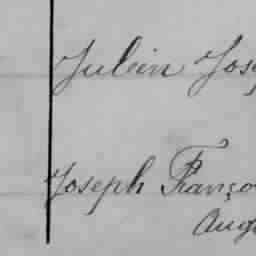 Julien Jos
Joseph Franço
Aug